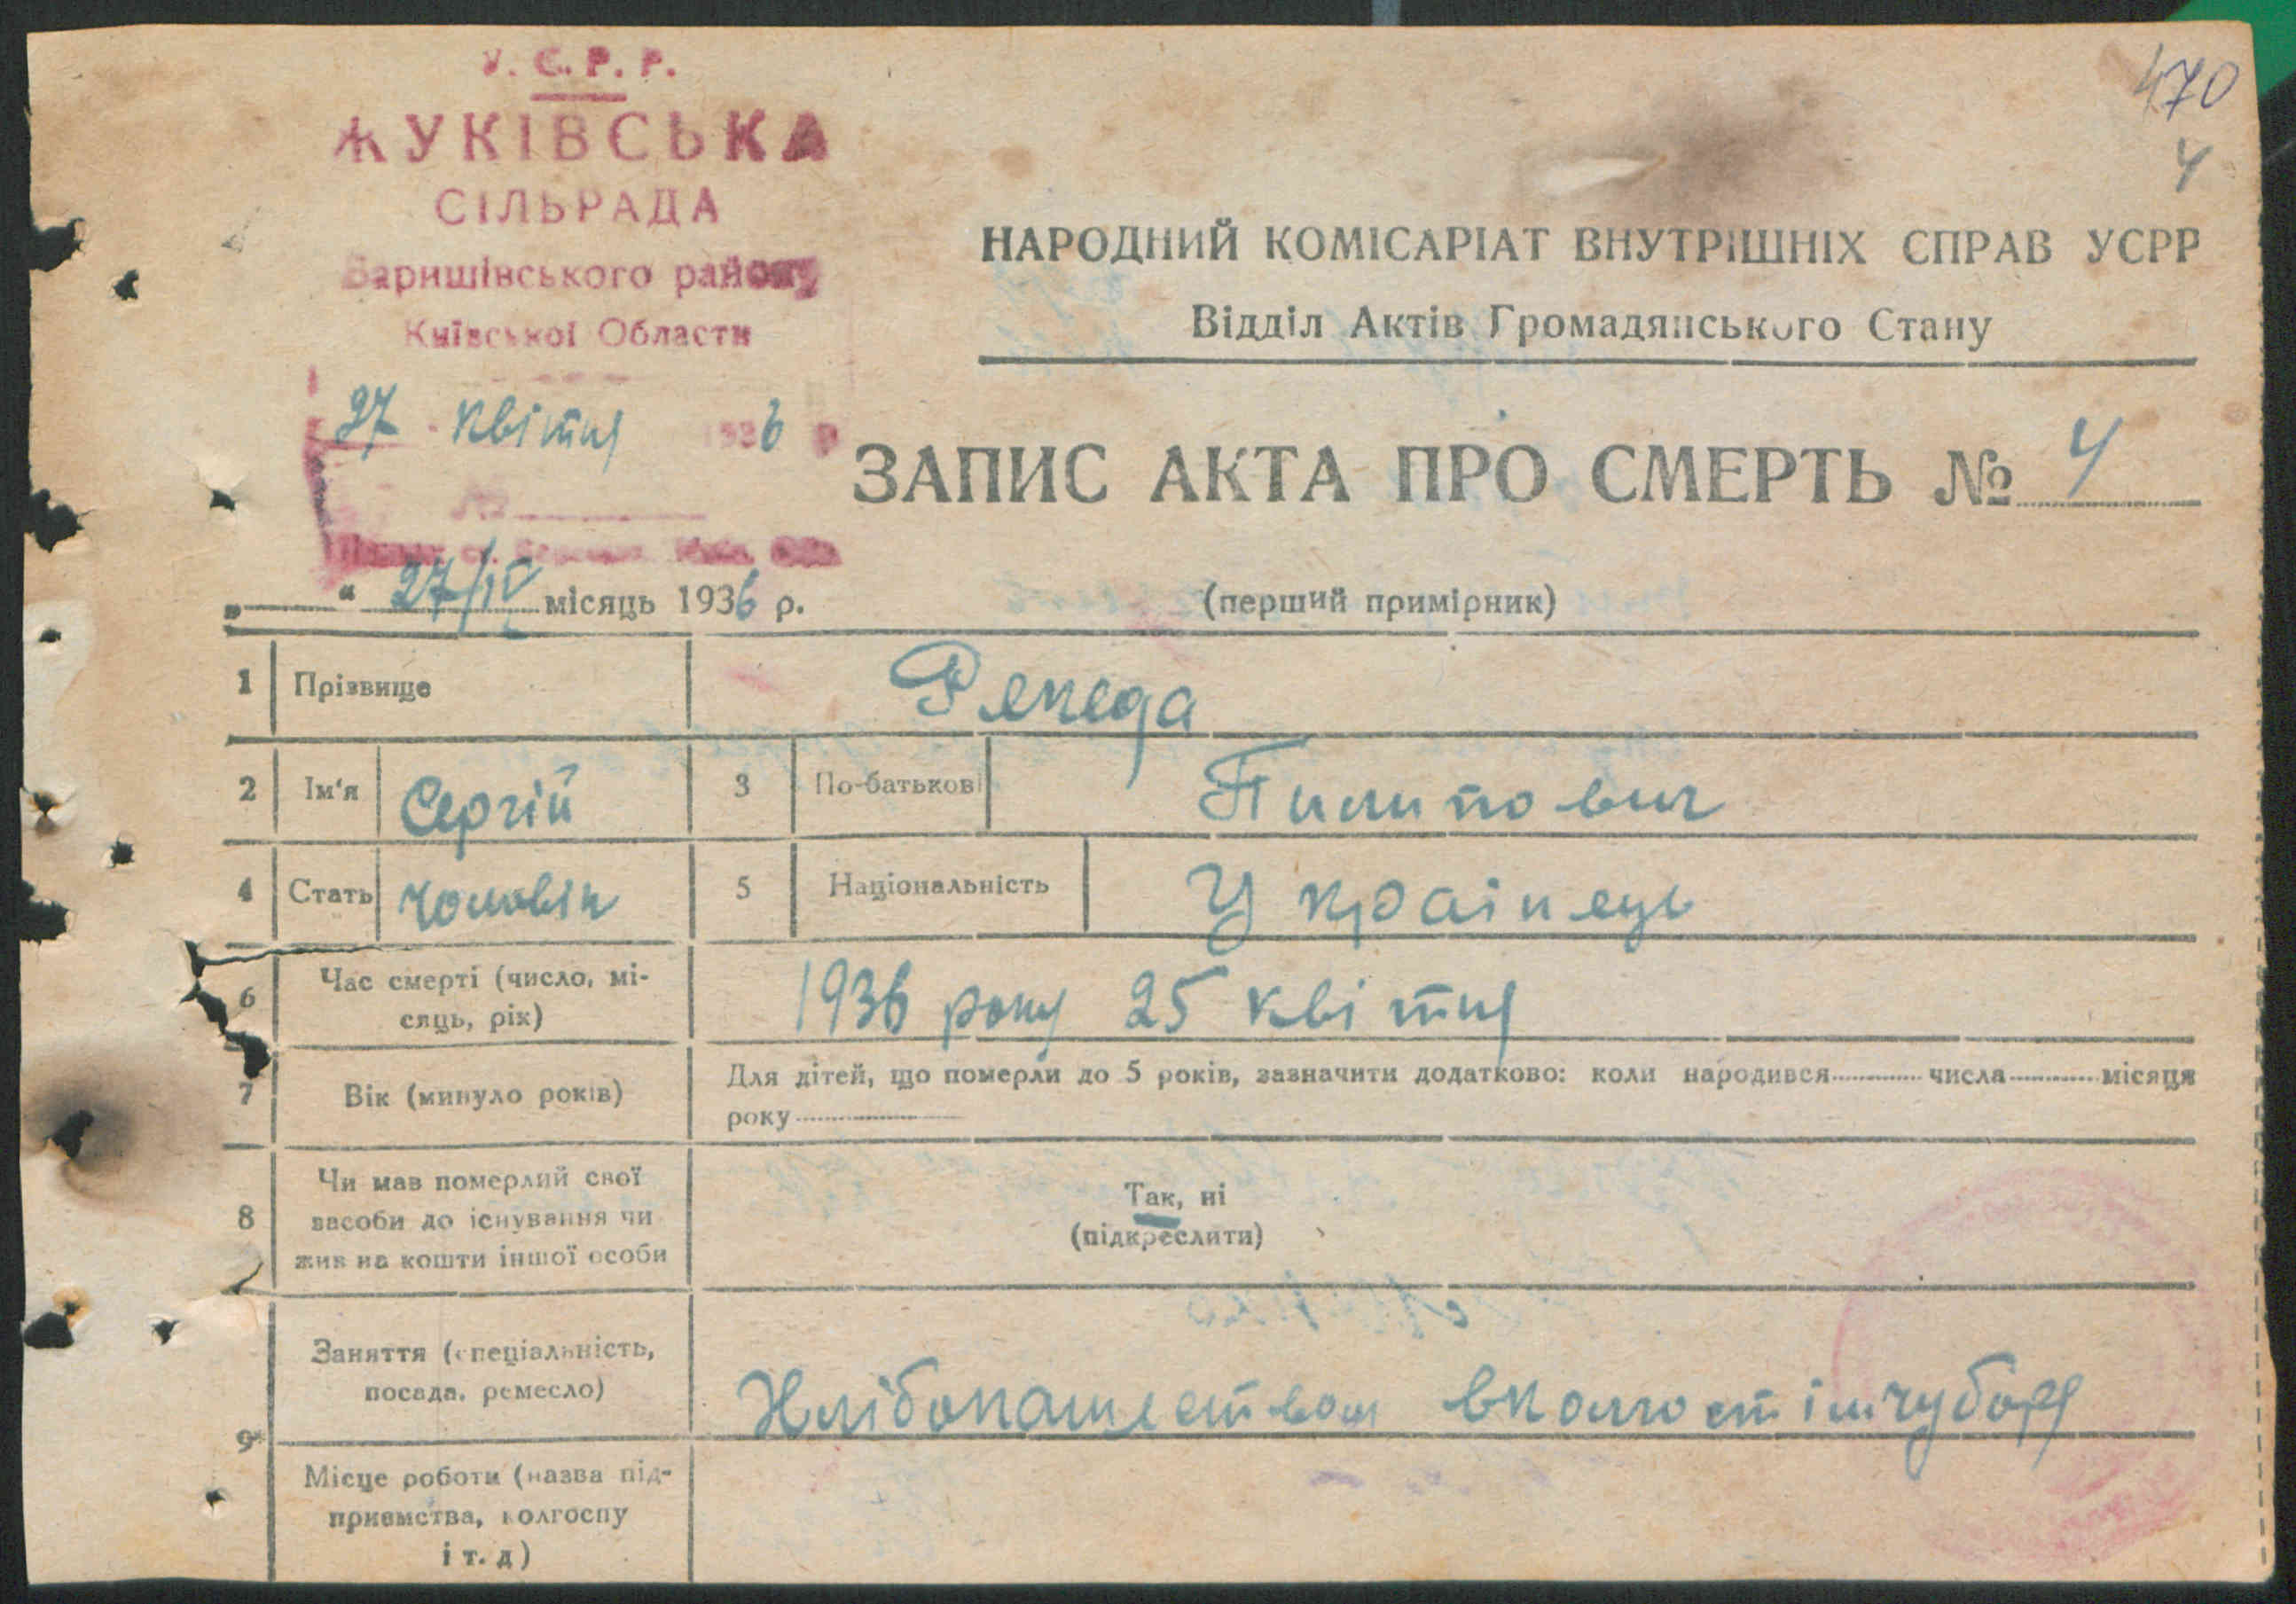 У. С. Р. Р.
ЖУКІВСЬКА
СІЛЬРАДА
Баришівського району
Київської Области
27 квітня 1936 р
№
470
4
НАРОДНИЙ КОМІСАРІАТ ВНУТРІШНІХ СПРАВ УСРР
Відділ Актів Громадянського Стану
ЗАПИС АКТА ПРО СМЕРТЬ № 4
„ “ 27/IV місяць 1936 р.
(перший примірник)
1 Прізвище Репеда
2 Ім'я Сергій 3 По-батькові Пилипович
4 Стать чоловік 5 Національність Украінець
6 Час смерті (число, мі-
сяць, рік) 1936 року 25 квітня
7 Вік (минуло років) Для дітей, що померли до 5 років, зазначити додатково: коли народився числа місяця
року
8 Чи мав померлий свої
засоби до існування чи
жив на кошти іншої особи
Так, ні
(підкреслити)
9 Заняття (спеціальність,
посада, ремесло) Хлібопашеством
Місце роботи (назва під-
приємства, колгоспу
і т. д)